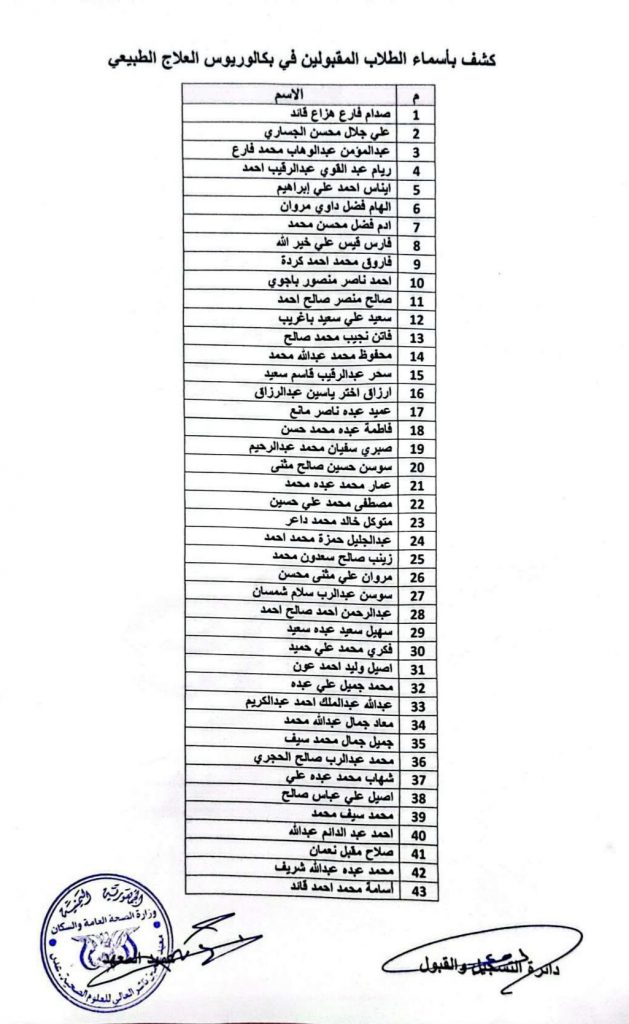 كشف بأسماء الطلاب المقبولين في بكالوريوس العلاج الطبيعي
م الاسم
1 صدام فارع هزاع قائد
2 علي جلال محسن الجساري
3 عبدالمؤمن عبدالوهاب محمد فارع
4 ريام عبد القوي عبدالرقيب احمد
5 ايناس احمد علي إبراهيم
6 الهام فضل داوي مروان
7 ادم فضل محسن محمد
8 فارس قيس علي خير الله
9 فاروق محمد احمد كردة
10 احمد ناصر منصور باجوي
11 صالح منصر صالح احمد
12 سعيد علي سعيد باغريب
13 فاتن نجيب محمد صالح
14 محفوظ محمد عبدالله محمد
15 سحر عبدالرقيب قاسم سعيد
16 ارزاق اختر ياسين عبدالرزاق
17 عميد عبده ناصر مانع
18 فاطمة عبده محمد حسن
19 صبري سفيان محمد عبدالرحيم
20 سوسن حسين صالح مثنى
21 عمار محمد عبده محمد
22 مصطفى محمد علي حسين
23 متوكل خالد محمد داعر
24 عبدالجليل حمزة محمد احمد
25 زينب صالح سعدون محمد
26 مروان علي مثنى محسن
27 سوسن عبدالرب سلام شمسان
28 عبدالرحمن احمد صالح احمد
29 سهيل سعيد عبده سعيد
30 فكري محمد علي حميد
31 اصيل وليد احمد عون
32 محمد جميل علي عبده
33 عبدالله عبدالملك احمد عبدالكريم
34 معاد جمال عبدالله محمد
35 جميل جمال محمد سيف
36 محمد عبدالرب صالح الحجري
37 شهاب محمد عبده علي
38 اصيل علي عباس صالح
39 محمد سيف محمد
40 احمد عبد الدائم عبدالله
41 صلاح مقبل نعمان
42 محمد عبده عبدالله شريف
43 أسامة محمد احمد قائد
دائرة التسجيل والقبول
عميد المعهد
الجمهورية اليمنية
وزارة الصحة العامة والسكان
العالي للعلوم الصحية - عدن